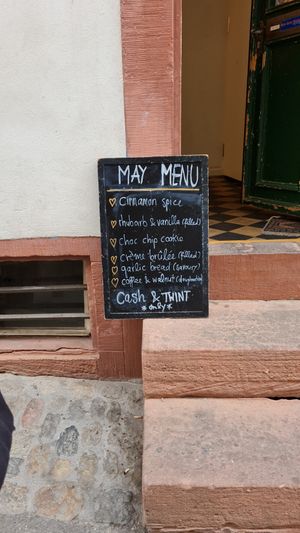 MAY MENU
♡ cinnamon spice
♡ rhubarb & vanilla (filled)
♡ choc chip cookie
♡ crème brûlée (filled)
♡ garlic bread (savoury)
♡ coffee & walnut (doughnut)
Cash & TWINT
*only*